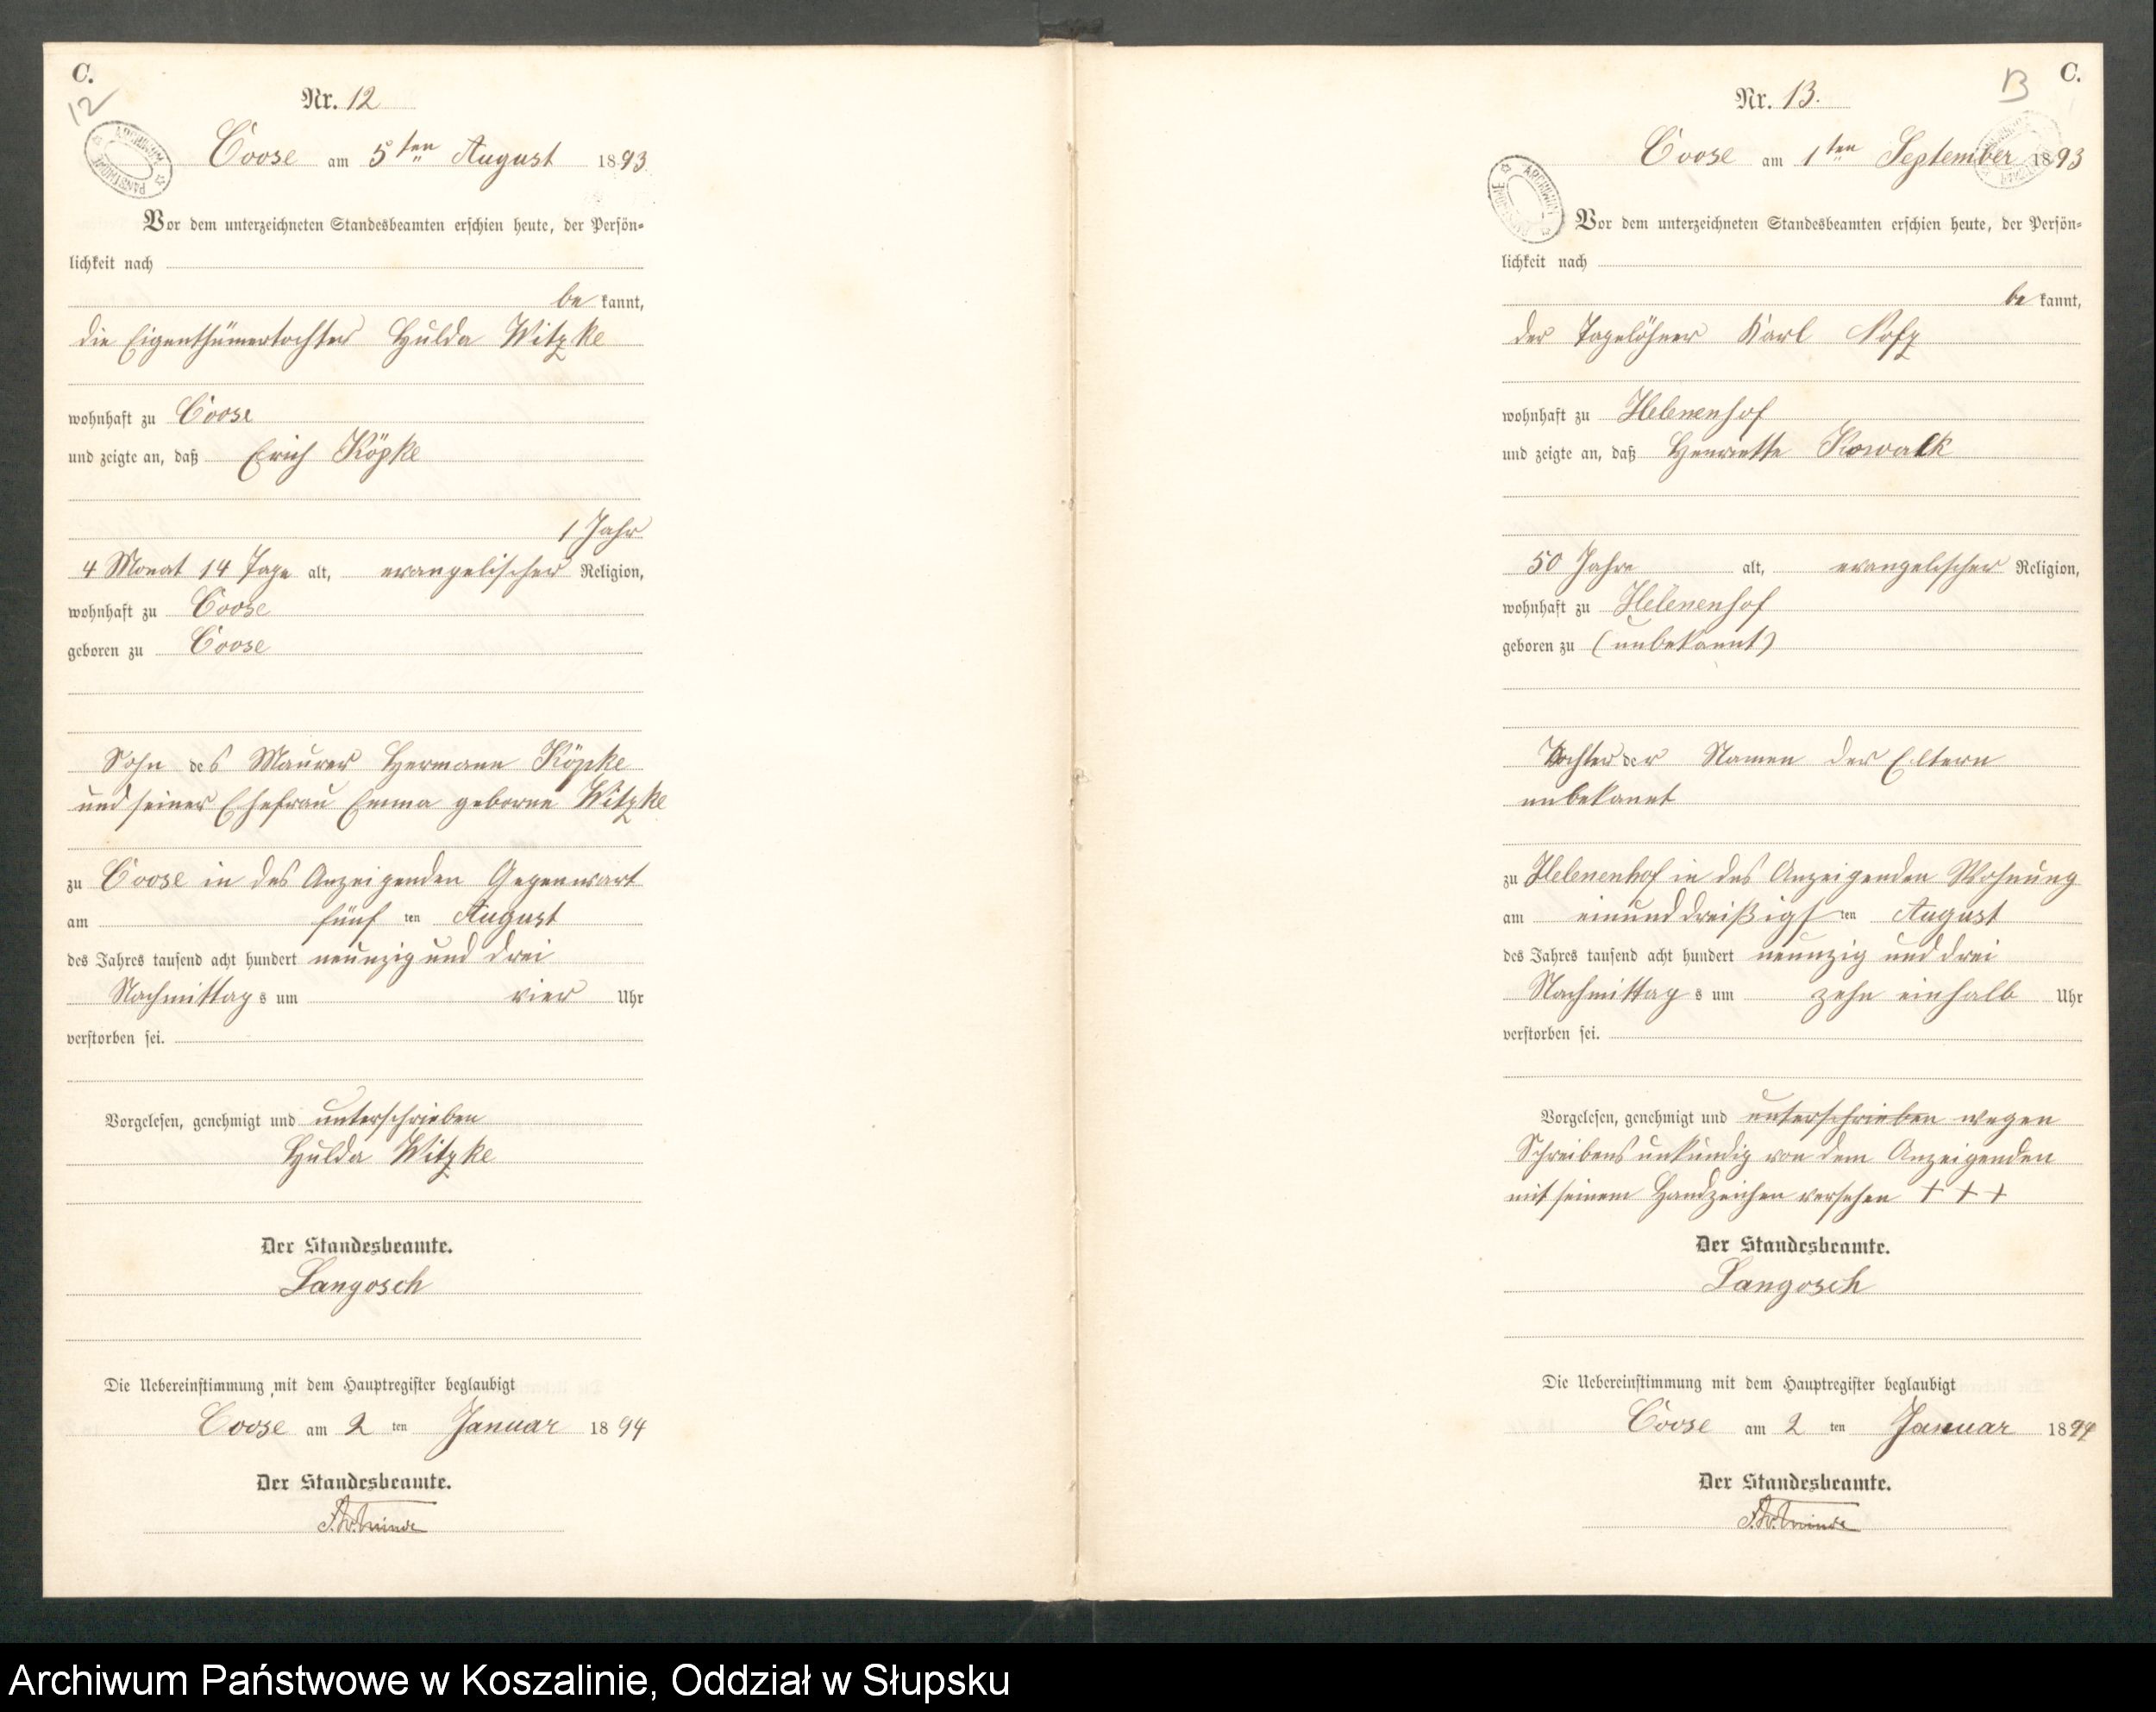 C.
12
Nr. 12
ARCHIWUM PAŃSTWOWE
Coose am 5ten August 1893.
Vor dem unterzeichneten Standesbeamten erschien heute, der Persön-
lichkeit nach
be kannt,
die Eigenthümertochter Hulda Witzke
wohnhaft zu Coose
und zeigte an, daß Erich Köpke
1 Jahr
4 Monat 14 Tage alt, evangelischer Religion,
wohnhaft zu Coose
geboren zu Coose
Sohn des Maurer Hermann Köpke
und seiner Ehefrau Emma geborne Witzke
zu Coose in des Anzeigenden Gegenwart
am fünf ten August
des Jahres tausend acht hundert neunzig und drei
Nachmittag s um vier Uhr
verstorben sei.
Vorgelesen, genehmigt und unterschrieben
Hulda Witzke
Der Standesbeamte.
Langosch
Die Uebereinstimmung mit dem Hauptregister beglaubigt
Coose am 2 ten Januar 1894
Der Standesbeamte.
C.
13
Nr. 13.
ARCHIWUM PAŃSTWOWE
Coose am 1ten September 1893
Vor dem unterzeichneten Standesbeamten erschien heute, der Persön-
lichkeit nach
be kannt,
der Tagelöhner Karl
wohnhaft zu Helenenhof
und zeigte an, daß Henriette Kowalk
50 Jahre alt, evangelischer Religion,
wohnhaft zu Helenenhof
geboren zu (unbekannt)
Tochter der Namen der Eltern
unbekannt
zu Helenenhof in des Anzeigenden Wohnung
am einunddreißigs ten August
des Jahres tausend acht hundert neunzig und drei
Nachmittag s um zehn einhalb Uhr
verstorben sei.
Vorgelesen, genehmigt und unterschrieben wegen
Schreibens unkundig von dem Anzeigenden
mit seinem Handzeichen versehen + + +
Der Standesbeamte.
Langosch
Die Uebereinstimmung mit dem Hauptregister beglaubigt
Coose am 2 ten Januar 1894
Der Standesbeamte.
Archiwum Państwowe w Koszalinie, Oddział w Słupsku